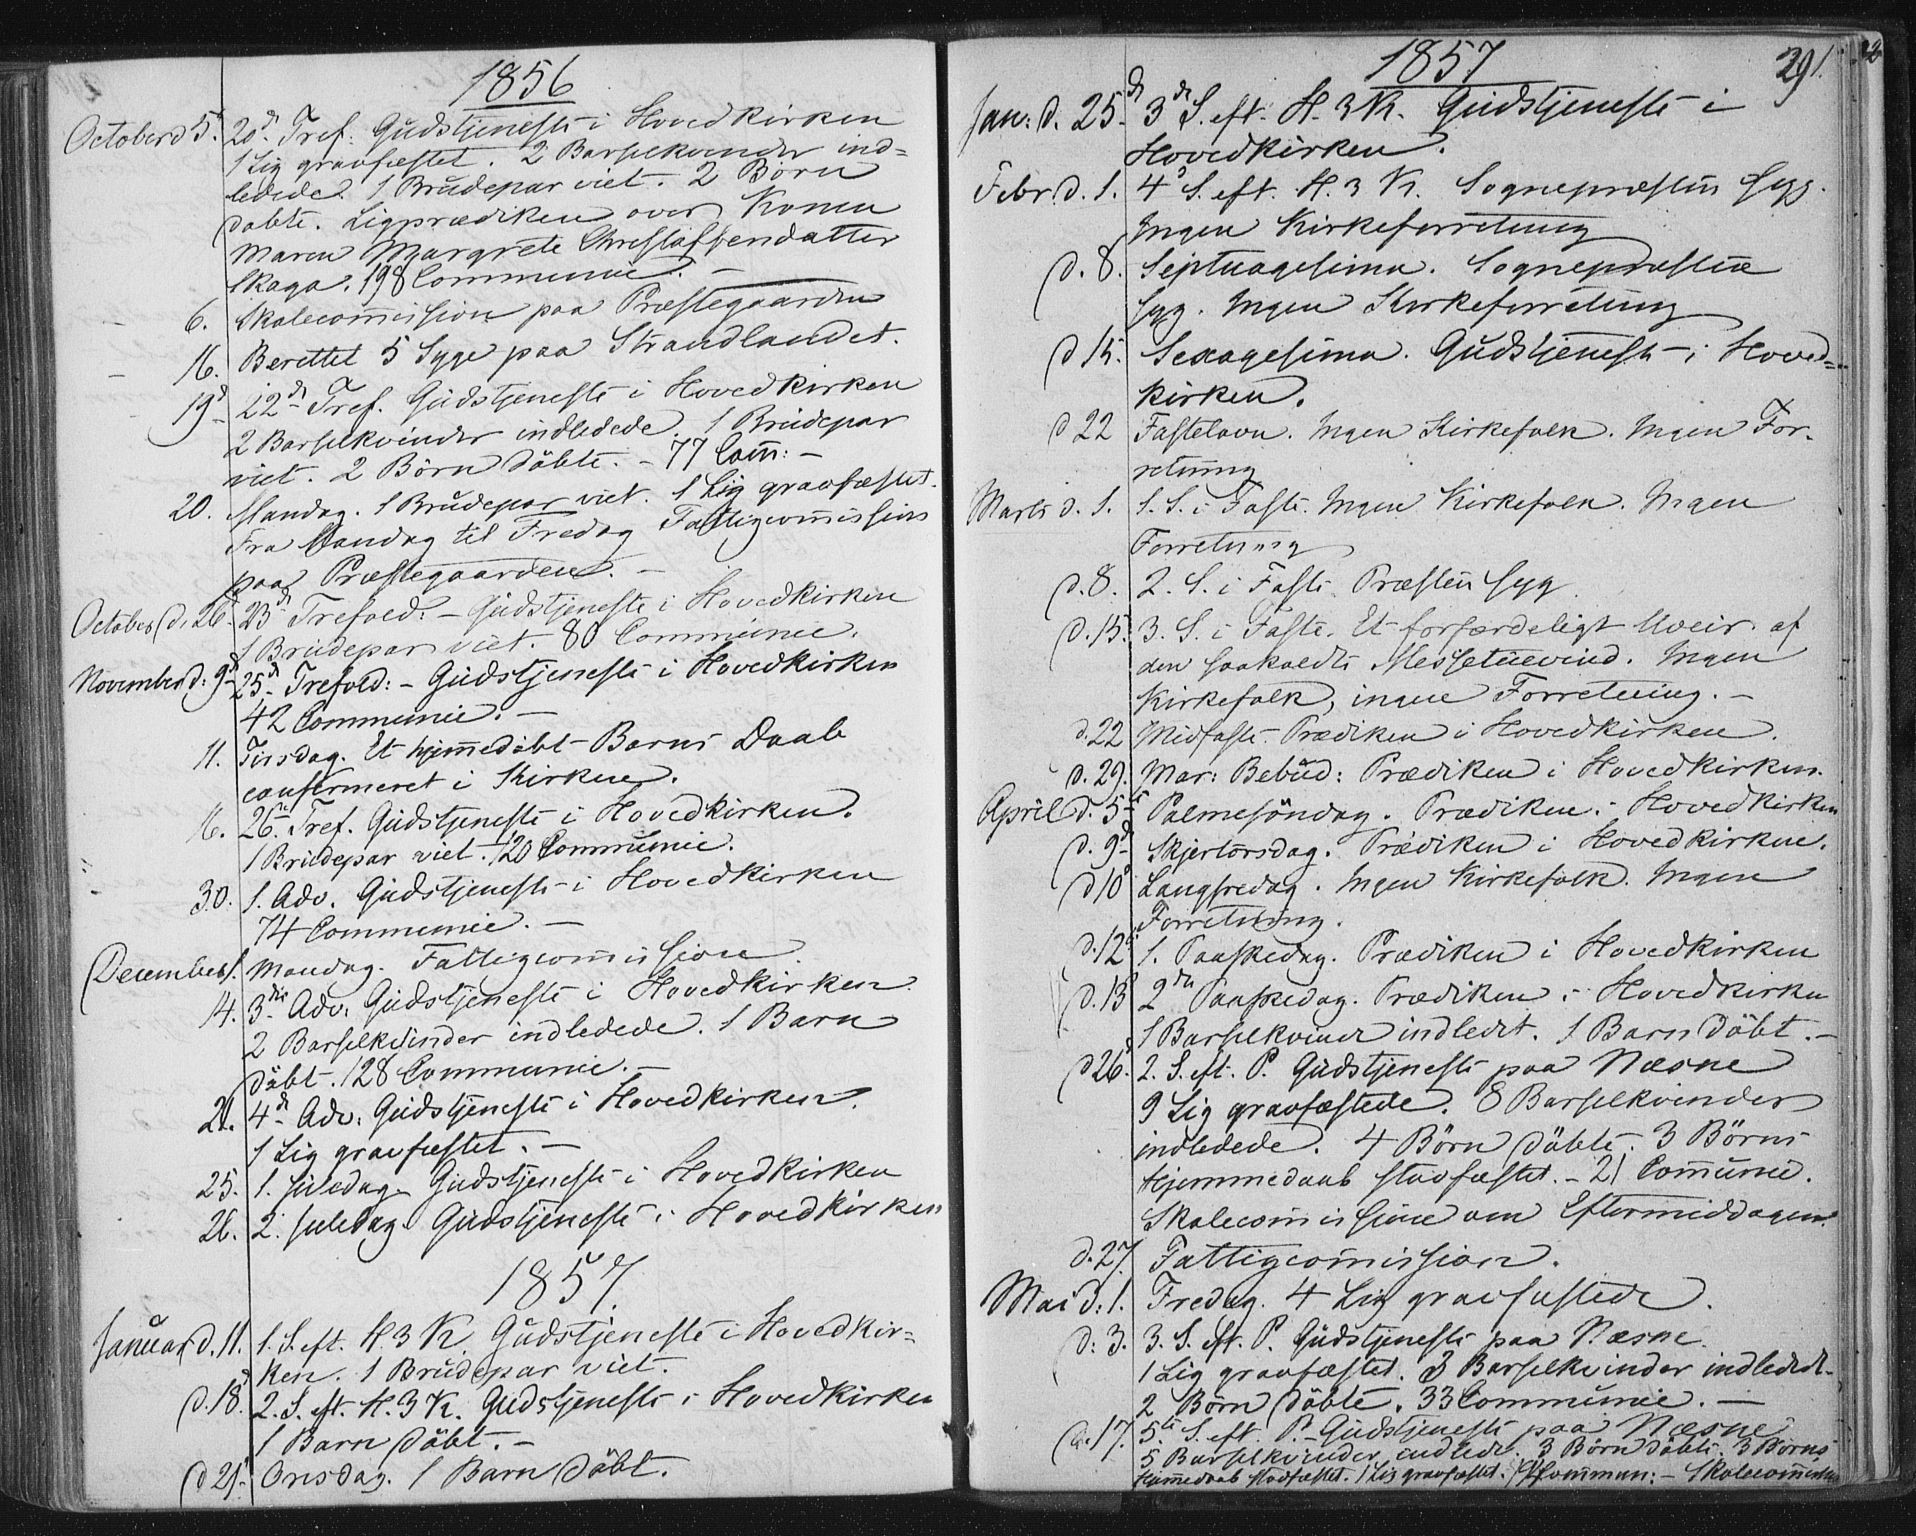 1856
October d 5. 20d. Tref: Gudstjeneste i Hovedkirken
1 Lig gravfæstet. 2 Barselkvinder ind=
ledede. 1 Brudepar viet. 2 Börn
døbte. Ligprædiken over Konen
Maren Margrete Christoffersdatter
Skaga. 198 Communic. –
6. Skolecommission paa Præstegaarden
16. Berettet 5 Syge paa Strandlandet.
19d 22d Tref. Gudstjeneste i Hovedkirken
2 Barselkvinder indledede. 1 Brudepar
viet. 2 Börn döbte. – 77 Com: –
20. Mandag. 1 Brudepar viet. 1 Lig gravfæstet.
Fra Mandag til Fredag Fattigcommission
paa Præstegaarden. –
October d. 26. 23d Trefold: – Gudstjeneste i Hovedkirken
1 Brudepar viet. 80 Communic.
November d: 9d 25d Trefold: – Gudstjeneste i Hovedkirken
42 Communic. –
11. Tirsdag. Et hjemmedöbt Barns Daab
confirmeret i Kirken.
16. 26. Tref. Gudstjeneste i Hovedkirken.
1 Brudepar viet. 120 Communic.
30. 1. Adv. Gudstjeneste i Hovedkirken
74 Communic. –
December 1. Mandag. Fattigcommission.
14. 3die Adv. Gudstjeneste i Hovedkirken
2 Barselkvinder indledede. 1 Barn
döbt. 128 Communic. –
21. 4d Adv: Gudstjeneste i Hovedkirken.
1 Lig gravfæstet. –
25. 1. Juledag Gudstjeneste i Hovedkirken
26. 2. Juledag Gudstjeneste i Hovedkirken
1857.
Januar d. 11. 1. S. eft. H. 3 K. Gudstjeneste i Hovedkir=
ken. 1 Brudepar viet.
d. 18. 2. S. eft. H. 3 K. Gudstjeneste i Hovedkirken
1 Barn döbt. –
d 21. Onsdag. 1 Barn döbt.
1857 291.
Jan: d. 25d 3d S. eft. H. 3 K. Gudstjeneste i
Hovedkirken.
Febr. d. 1. 4d S. eft. H. 3 K. Sognepræsten syg.
Ingen Kirkeforretning
d. 8. Septuagesima. Sognepræsten
syg. Ingen Kirkeforretning
d 15. Sexagesima. Gudstjeneste i Hoved=
kirken.
d 22 Fastelavn. Ingen Kirkefolk. Ingen For=
retning
Marts d. 1. 1. S. i Faste. Ingen Kirkefolk. Ingen
Forretning
d. 8. 2. S. i Faste. Præsten syg
d. 15. 3. S. i Faste. Et forfærdeligt Uveir af
den saakaldte Messetuevind. Ingen
Kirkefolk, ingen Forretning. –
d. 22 Midfaste. Prædiken i Hovedkirken.
d. 29. Mar: Bebud: Prædiken i Hovedkirken.
April d. 5. Palmesöndag. Prædiken i Hovedkirken
d. 9d Skjertorsdag. Prædiken i Hovedkirken.
d 10d Langfredag. Ingen Kirkefolk. Ingen
Forretning.
d. 12. 1. Paaskedag. Prædiken i Hovedkirken
d. 13 2den Paaskedag. Prædiken i Hovedkirken
1 Barselkvinde indledet. 1 Barn döbt. –
d 26. 2. S. eft. P. Gudstjeneste paa Næsne
9 Lig gravfæstede. 8 Barselkvinder
indledede. 4 Börn döbte. 3 Börns
Hjemmedaab stadfæstet. – 21 Communic.
Skolecommission om Eftermiddagen.
d. 27. Fattigcommission.
Mai d: 1. Fredag. 4 Lig gravfæstede.
d: 3. 3. S. eft. P. Gudstjeneste paa Næsne.
1 Lig gravfæstet. 3 Barselkvinder indledet.
2 Börn döbte. 33 Communic. –
d. 17. 5te S. eft. P. – Gudstjeneste paa Næsne.
5 Barselkvinder indlede. 3 Börn döbte. 3 Börns
hjemmedaab stadfæstet. 1 Lig gravfæstet. Commun: – Skolecommission